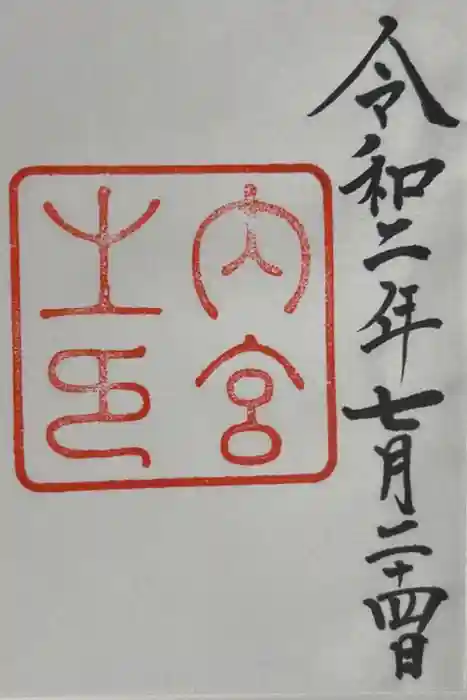 令和二年七月二十四日
内宮
之印